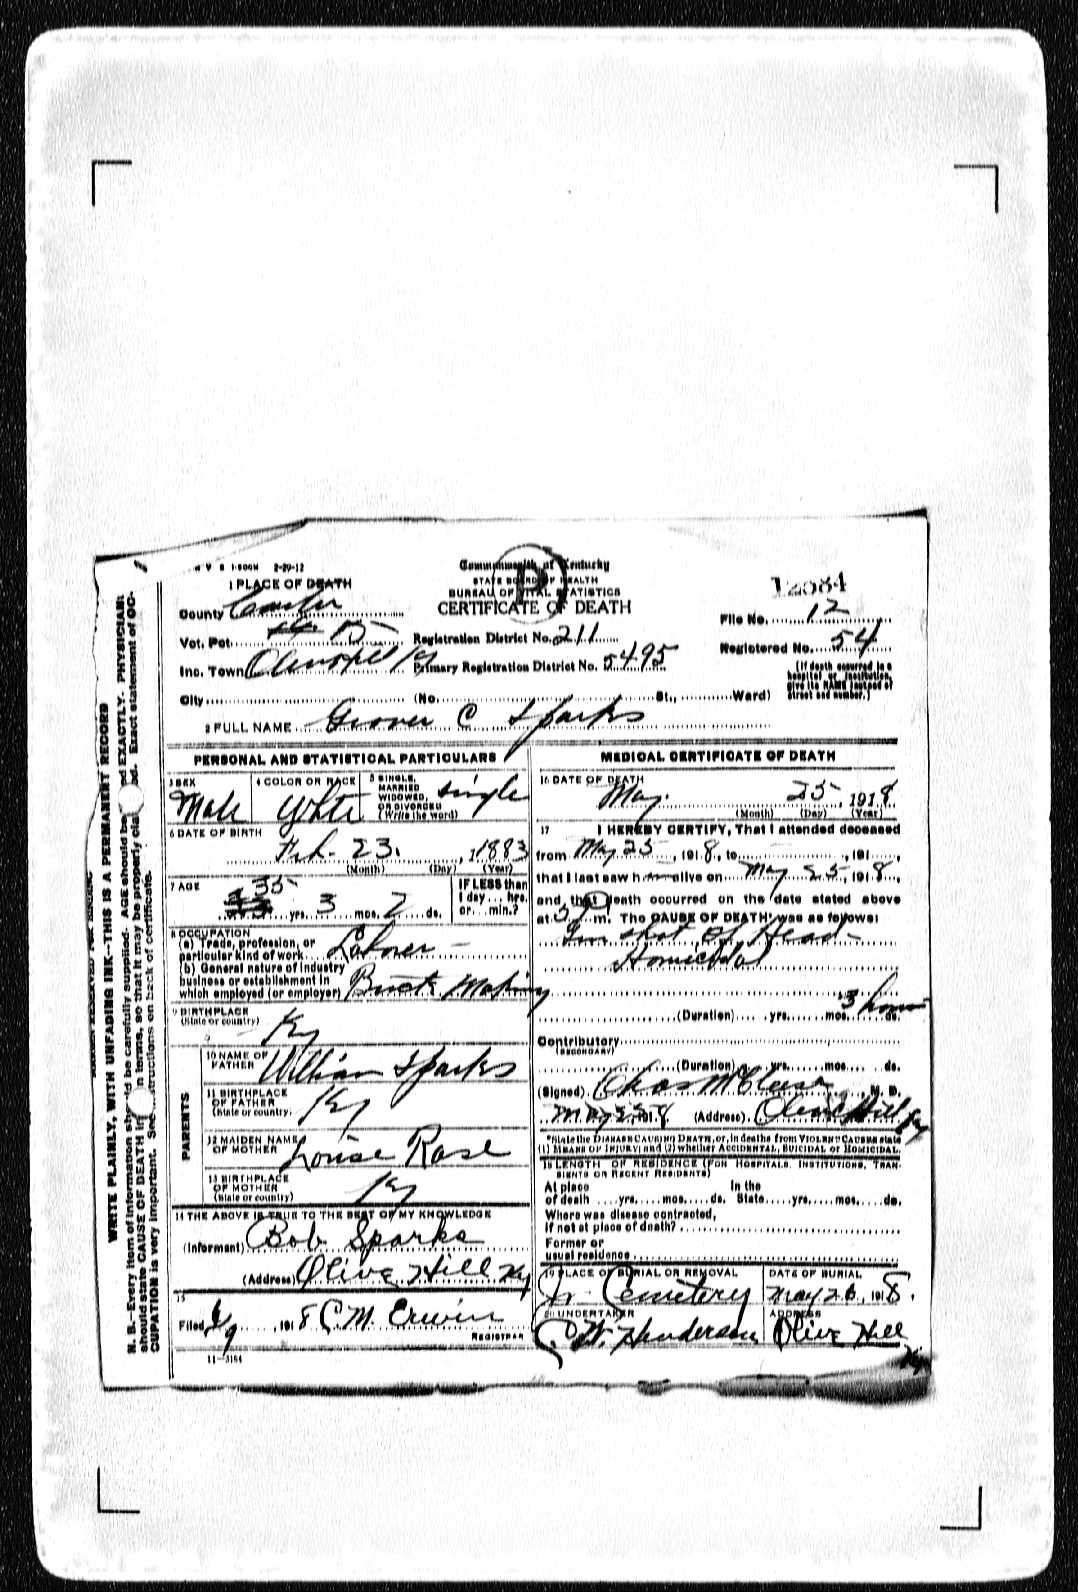 V S 1-500M 2-29-12
Commonwealth of Kentucky
STATE BOARD OF HEALTH
BUREAU OF VITAL STATISTICS
CERTIFICATE OF DEATH
12084
1 PLACE OF DEATH
County Carter
Vot. Pct. 15
Inc. Town Olive Hill Ky
City (No. St., Ward)
Registration District No. 211
Primary Registration District No. 5495
File No. 12
Registered No. 54
(If death occurred in a
hospital or institution,
give its NAME instead of
street and number.)
2 FULL NAME Grover C Sparks
PERSONAL AND STATISTICAL PARTICULARS
3 SEX
Male
4 COLOR OR RACE
White
5 SINGLE,
MARRIED
WIDOWED,
OR DIVORCED
(Write the word)
single
6 DATE OF BIRTH
Feb. 23. , 1883
(Month) (Day) (Year)
7 AGE
35 yrs. 3 mos. 2 ds.
IF LESS than
1 day ... hrs.
or ... min.?
8 OCCUPATION
(a) Trade, profession, or
particular kind of work Laborer
(b) General nature of industry
business or establishment in
which employed (or employer) Brick Making
9 BIRTHPLACE
(State or country)
Ky
PARENTS
10 NAME OF
FATHER William Sparks
11 BIRTHPLACE
OF FATHER
(State or country)
Ky
12 MAIDEN NAME
OF MOTHER Louise Rose
13 BIRTHPLACE
OF MOTHER
(State or country)
Ky
14 THE ABOVE IS TRUE TO THE BEST OF MY KNOWLEDGE
(Informant) Bob Sparks
(Address) Olive Hill Ky
15
Filed 6/9, 1918 C. M. Erwin
REGISTRAR
11-3184
MEDICAL CERTIFICATE OF DEATH
16 DATE OF DEATH
May 25, 1918
(Month) (Day) (Year)
17 I HEREBY CERTIFY, That I attended deceased
from May 25, 1918, to , 191 ,
that I last saw him alive on May 25, 1918,
and that death occurred on the date stated above
at 5 P m. The CAUSE OF DEATH* was as follows:
Gun shot of Head
Homicidal
3 hours
(Duration) yrs. mos. ds.
Contributory
(SECONDARY)
(Duration) yrs. mos. ds.
(Signed) Chas McCleese, M. D.
May 25 1918 (Address) Olive Hill Ky
*State the DISEASE CAUSING DEATH, or, in deaths from VIOLENT CAUSES state
(1) MEANS OF INJURY; and (2) whether ACCIDENTAL, SUICIDAL or HOMICIDAL.
18 LENGTH OF RESIDENCE (FOR HOSPITALS, INSTITUTIONS, TRAN-
SIENTS OR RECENT RESIDENTS)
At place In the
of death yrs. mos. ds. State yrs. mos. ds.
Where was disease contracted,
If not at place of death?
Former or
usual residence
19 PLACE OF BURIAL OR REMOVAL
Cemetery
DATE OF BURIAL
May 26, 1918.
20 UNDERTAKER
W. Henderson
ADDRESS
Olive Hill
Ky
WRITE PLAINLY, WITH UNFADING INK-THIS IS A PERMANENT RECORD
N. B.-Every item of information should be carefully supplied. AGE should be EXACTLY. PHYSICIANS
should state CAUSE OF DEATH in terms, so that it may be properly Exact statement of OC-
CUPATION is very important. See instructions on back of certificate.